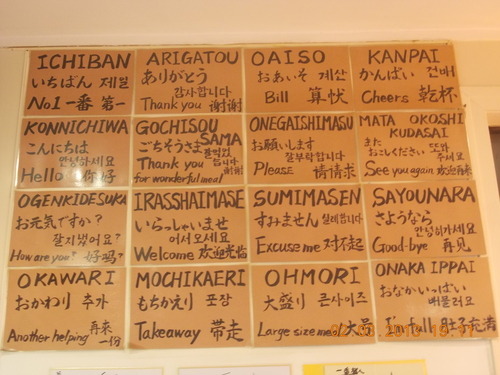 ICHIBAN
いちばん 제일
No.1 一番 第一
ARIGATOU
ありがとう
감사합니다
Thank you 谢谢
OAISO
おあいそ 계산
Bill 算
KANPAI
かんぱい 건배
Cheers 乾杯
KONNICHIWA
こんにちは
안녕하세요
Hello 你好
GOCHISOU
SAMA
ごちそうさま
Thank you
for wonderful meal
谢谢
ONEGAISHIMASU
お願いします
잘부탁합니다
Please 请请求
MATA OKOSHI
KUDASAI
また
おこしください 또와
주세요
See you again 欢迎再来
OGENKIDESUKA
お元気ですか?
잘지냈어요?
How are you? 好吗?
IRASSHAIMASE
いらっしゃいませ
어서오세요
Welcome 欢迎光临
SUMIMASEN
すみません 실례합니다
Excuse me 对不起
SAYOUNARA
さようなら
안녕히가세요
Good-bye 再见
OKAWARI
おかわり 추가
Another helping 再来
一份
MOCHIKAERI
もちかえり 포장
Takeaway 带走
OHMORI
大盛り 큰사이즈
Large size meal 大
ONAKA IPPAI
おなかいっぱい
배불러요
I'm full 肚子充满
2010 19: